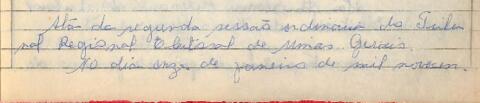 Ata da segunda sessão ordinaria do Tribu
nal Regional Eleitoral de Minas Gerais.
No dia onze de janeiro de mil novecen.